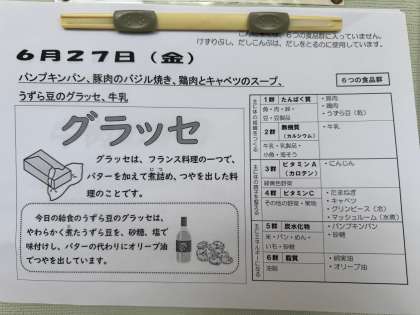 に入っていません。
けずりぶし、だしこんぶは、だしをとるのに使用しています。
6月27日（金）
パンプキンパン、豚肉のバジル焼き、鶏肉とキャベツのスープ、
うずら豆のグラッセ、牛乳
グラッセ
グラッセは、フランス料理の一つで、
バターを加えて煮詰め、つやを出した料
理のことです。
今日の給食のうずら豆のグラッセは、
やわらかく煮たうずら豆を、砂糖、塩で
味付けし、バターの代わりにオリーブ油
でつやを出しています。
6つの食品群
1群 たんぱく質
魚・肉・卵・
豆・豆製品
・豚肉
・鶏肉
・うずら豆（乾）
2群 無機質
（カルシウム）
牛乳・乳製品・
小魚・海そう
・牛乳
3群 ビタミンA
（カロテン）
緑黄色野菜
・にんじん
4群 ビタミンC
その他の野菜・果物
・たまねぎ
・キャベツ
・グリンピース（冷）
・マッシュルーム（水煮）
5群 炭水化物
米・パン・めん・
いも・砂糖
・パンプキンパン
・砂糖
6群 脂質
油脂
・綿実油
・オリーブ油